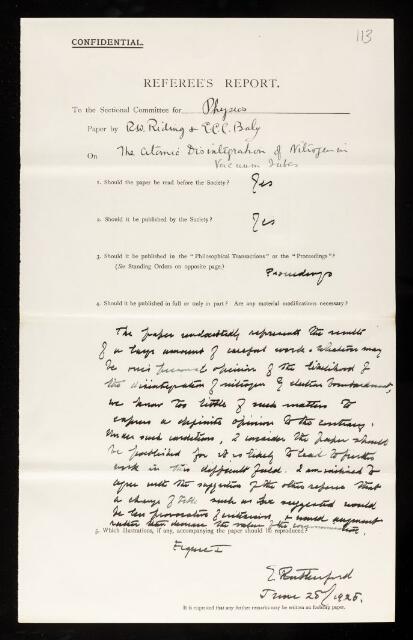 113
CONFIDENTIAL.
REFEREE'S REPORT.
To the Sectional Committee for Physics
Paper by R.W. Riding & E.C.C. Baly
On The Atomic Disintegration of Nitrogen in
Vacuum Tubes
1. Should the paper be read before the Society? Yes
2. Should it be published by the Society? Yes
3. Should it be published in the "Philosophical Transactions" or the "Proceedings"?
(See Standing Orders on opposite page.)
Proceedings
4. Should it be published in full or only in part? Are any material modifications necessary?
The paper undoubtedly represents the results
of a large amount of careful work & whatever may
be one's personal opinion of the likelihood of
the disintegration of nitrogen by electron bombardment,
we know too little of such matters to
express a definite opinion to the contrary.
Under such conditions, I consider the paper should
be published for it is likely to lead to further
work in this difficult field. I am inclined to
agree with the suggestion of the other referee that
a change of title such as he suggested would
be less provocative of criticism, & would augment
rather than decrease the value of the communication.
5. Which illustrations, if any, accompanying the paper should be reproduced?
Figure I
E. Rutherford
June 25/1925.
It is requested that any further remarks may be written on foolscap paper.